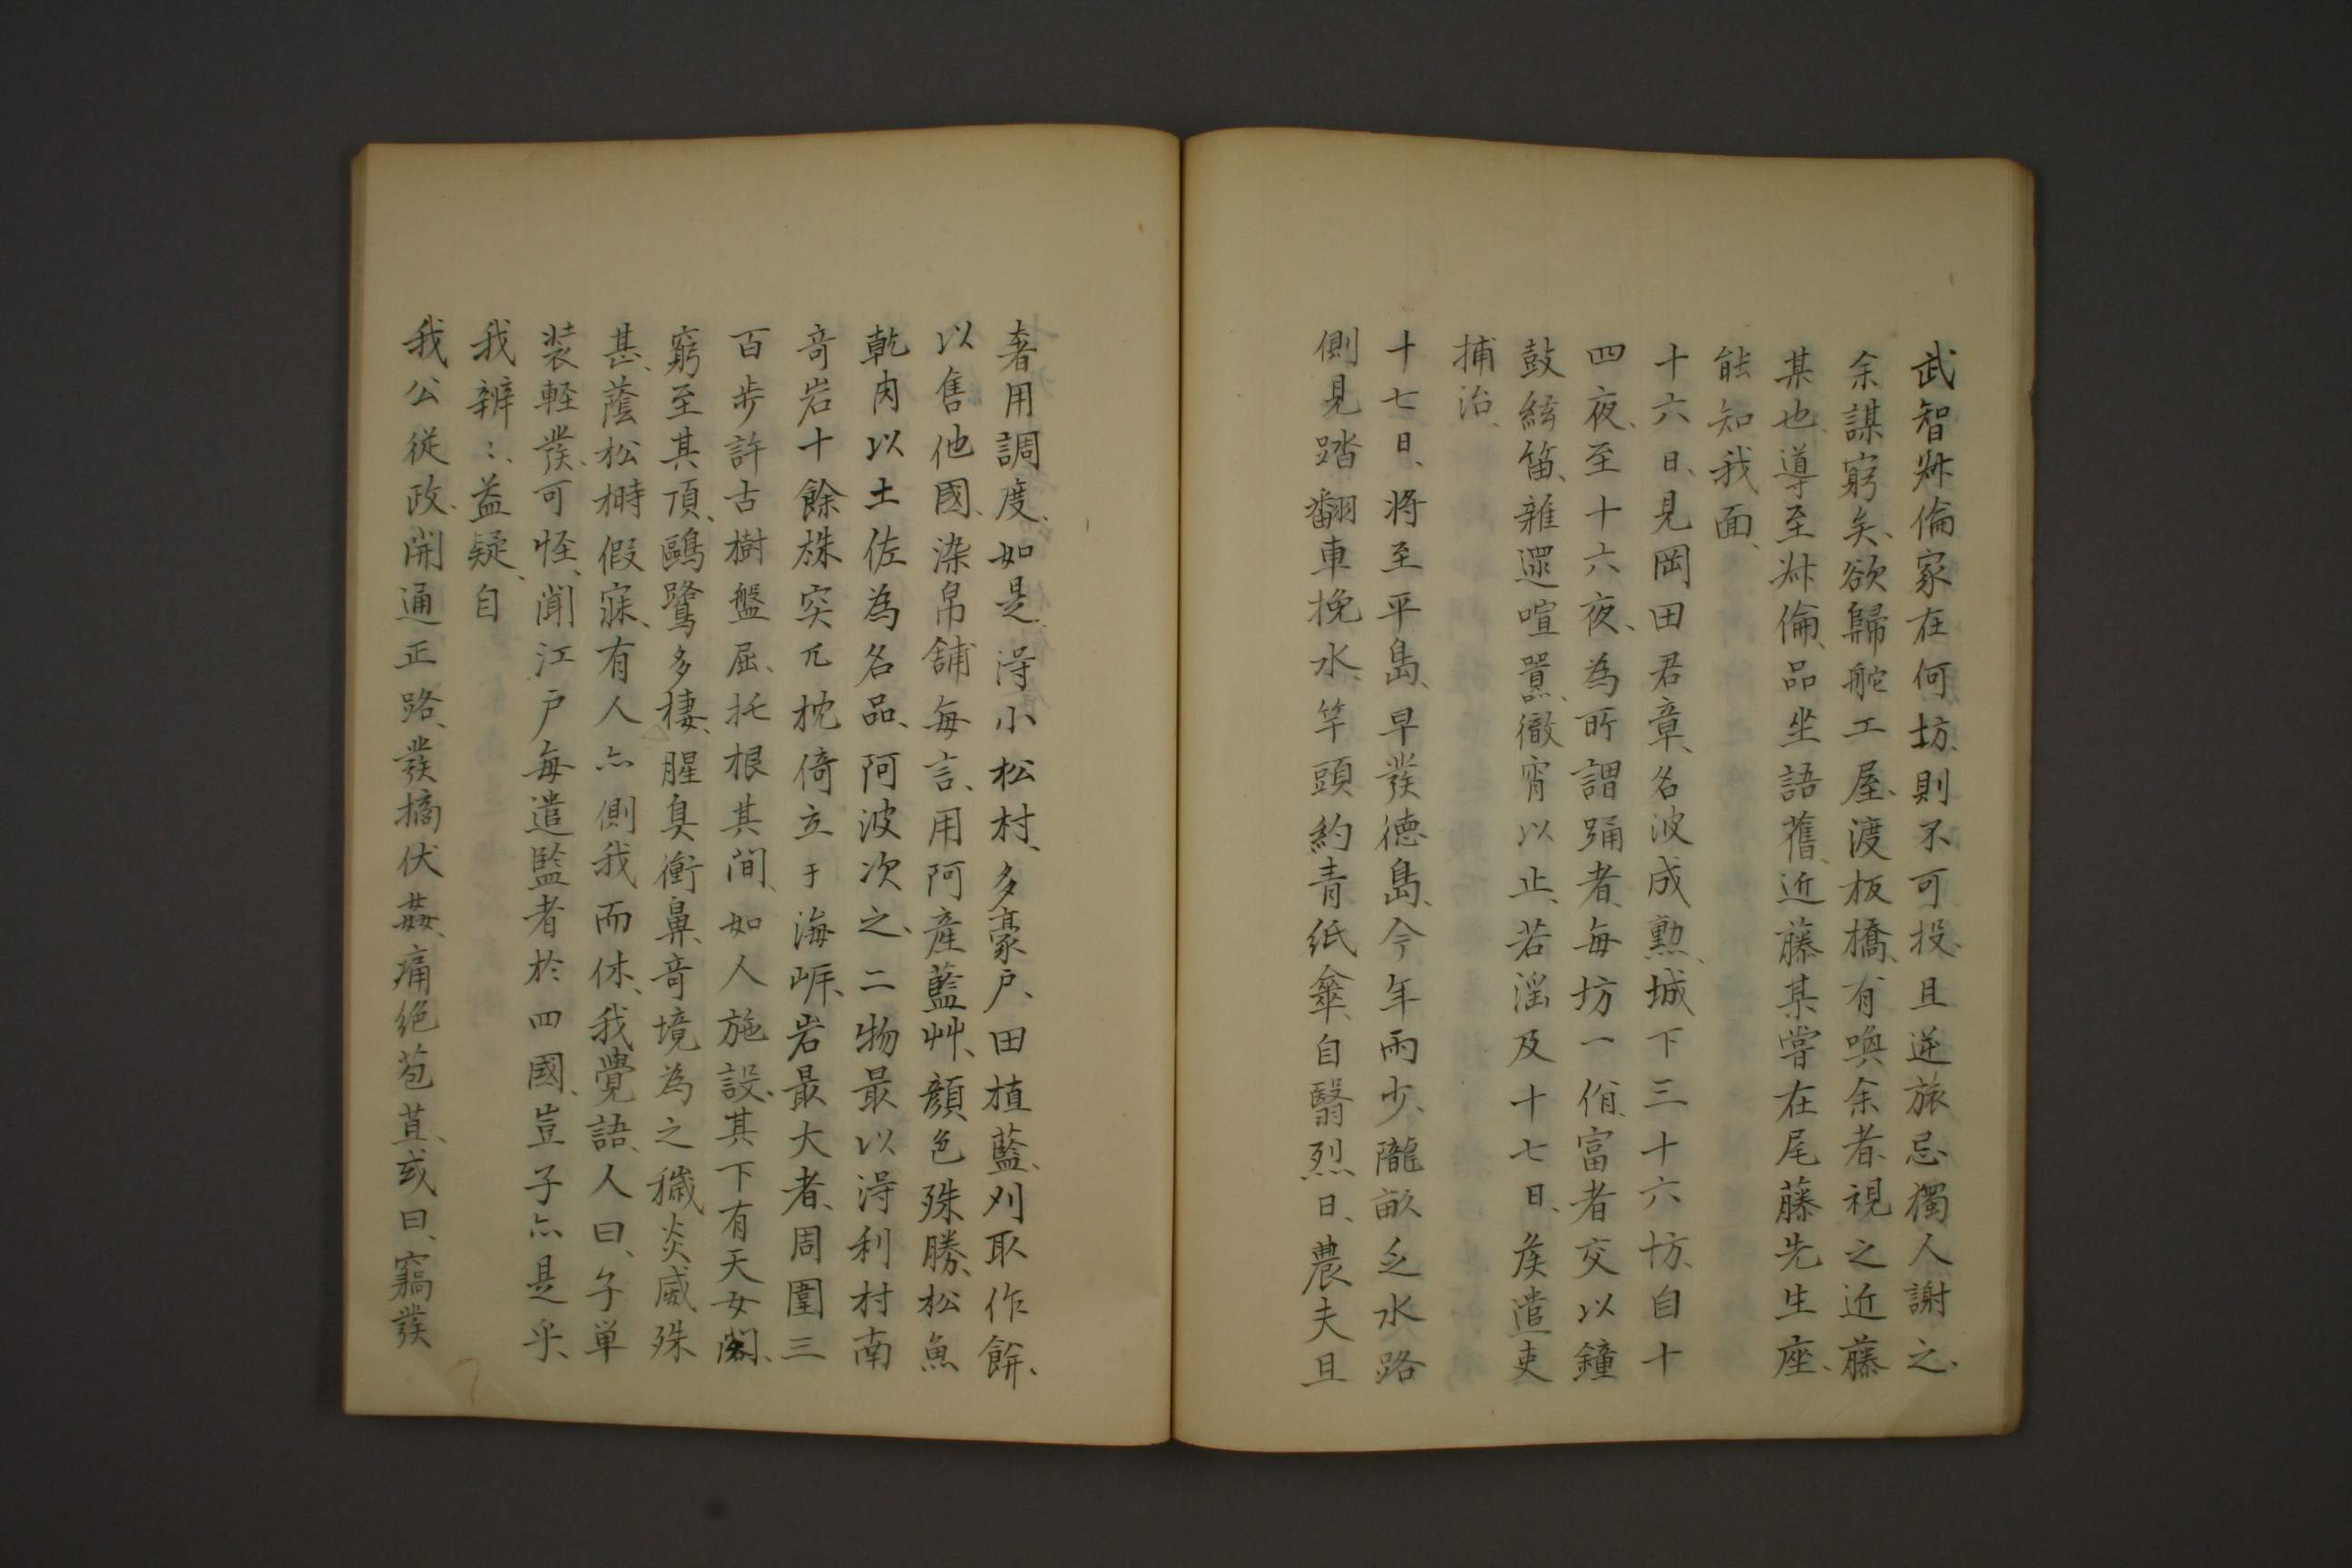 武智麻倫家在何坊、則不可投、且逆旅忌獨人謝之、
余謀窮矣、欲歸舵工屋、渡板橋、有喚余者、視之近藤
某也、導至麻倫、品坐語舊、近藤某嘗在尾藤先生座、
能知我面、
十六日、見岡田君章、名波成勲、城下三十六坊、自十
四夜、至十六夜、為所謂踊者、每坊一佾、富者交以鐘
鼓絃笛、雜遝喧囂、徹宵以止、若滛及十七日、矦遣吏
捕治、
十七日、將至平島、早發德島、今年雨少、隴畝乏水、路
側見踏翻車挽水、竿頭約青紙傘、自翳烈日、農夫且
奢用調度、如是、淂小松村、多豪戶、田植藍、刈取作餅、
以售他國、染帛舖每言、用阿產藍艸、顏色殊勝、松魚
乾肉以土佐為名品、阿波次之、二物最以淂利、村南
奇岩十餘株、突兀枕倚立于海岸、岩最大者、周圍三
百步許、古樹盤屈、托根其間、如人施設、其下有天女閣、
窮至其頂、鷗鷺多棲、腥臭衝鼻、奇境為之穢、炎威殊
甚、蔭松樹假寐、有人亦側我而休、我覺語、人曰、子単
装軽發、可怪、闻江戸每遣監者於四國、豈子亦是乎、
我辨〻、益疑、自
我公從政、開通正路、發摘伏姦、痛絕苞苴、或曰、竊發